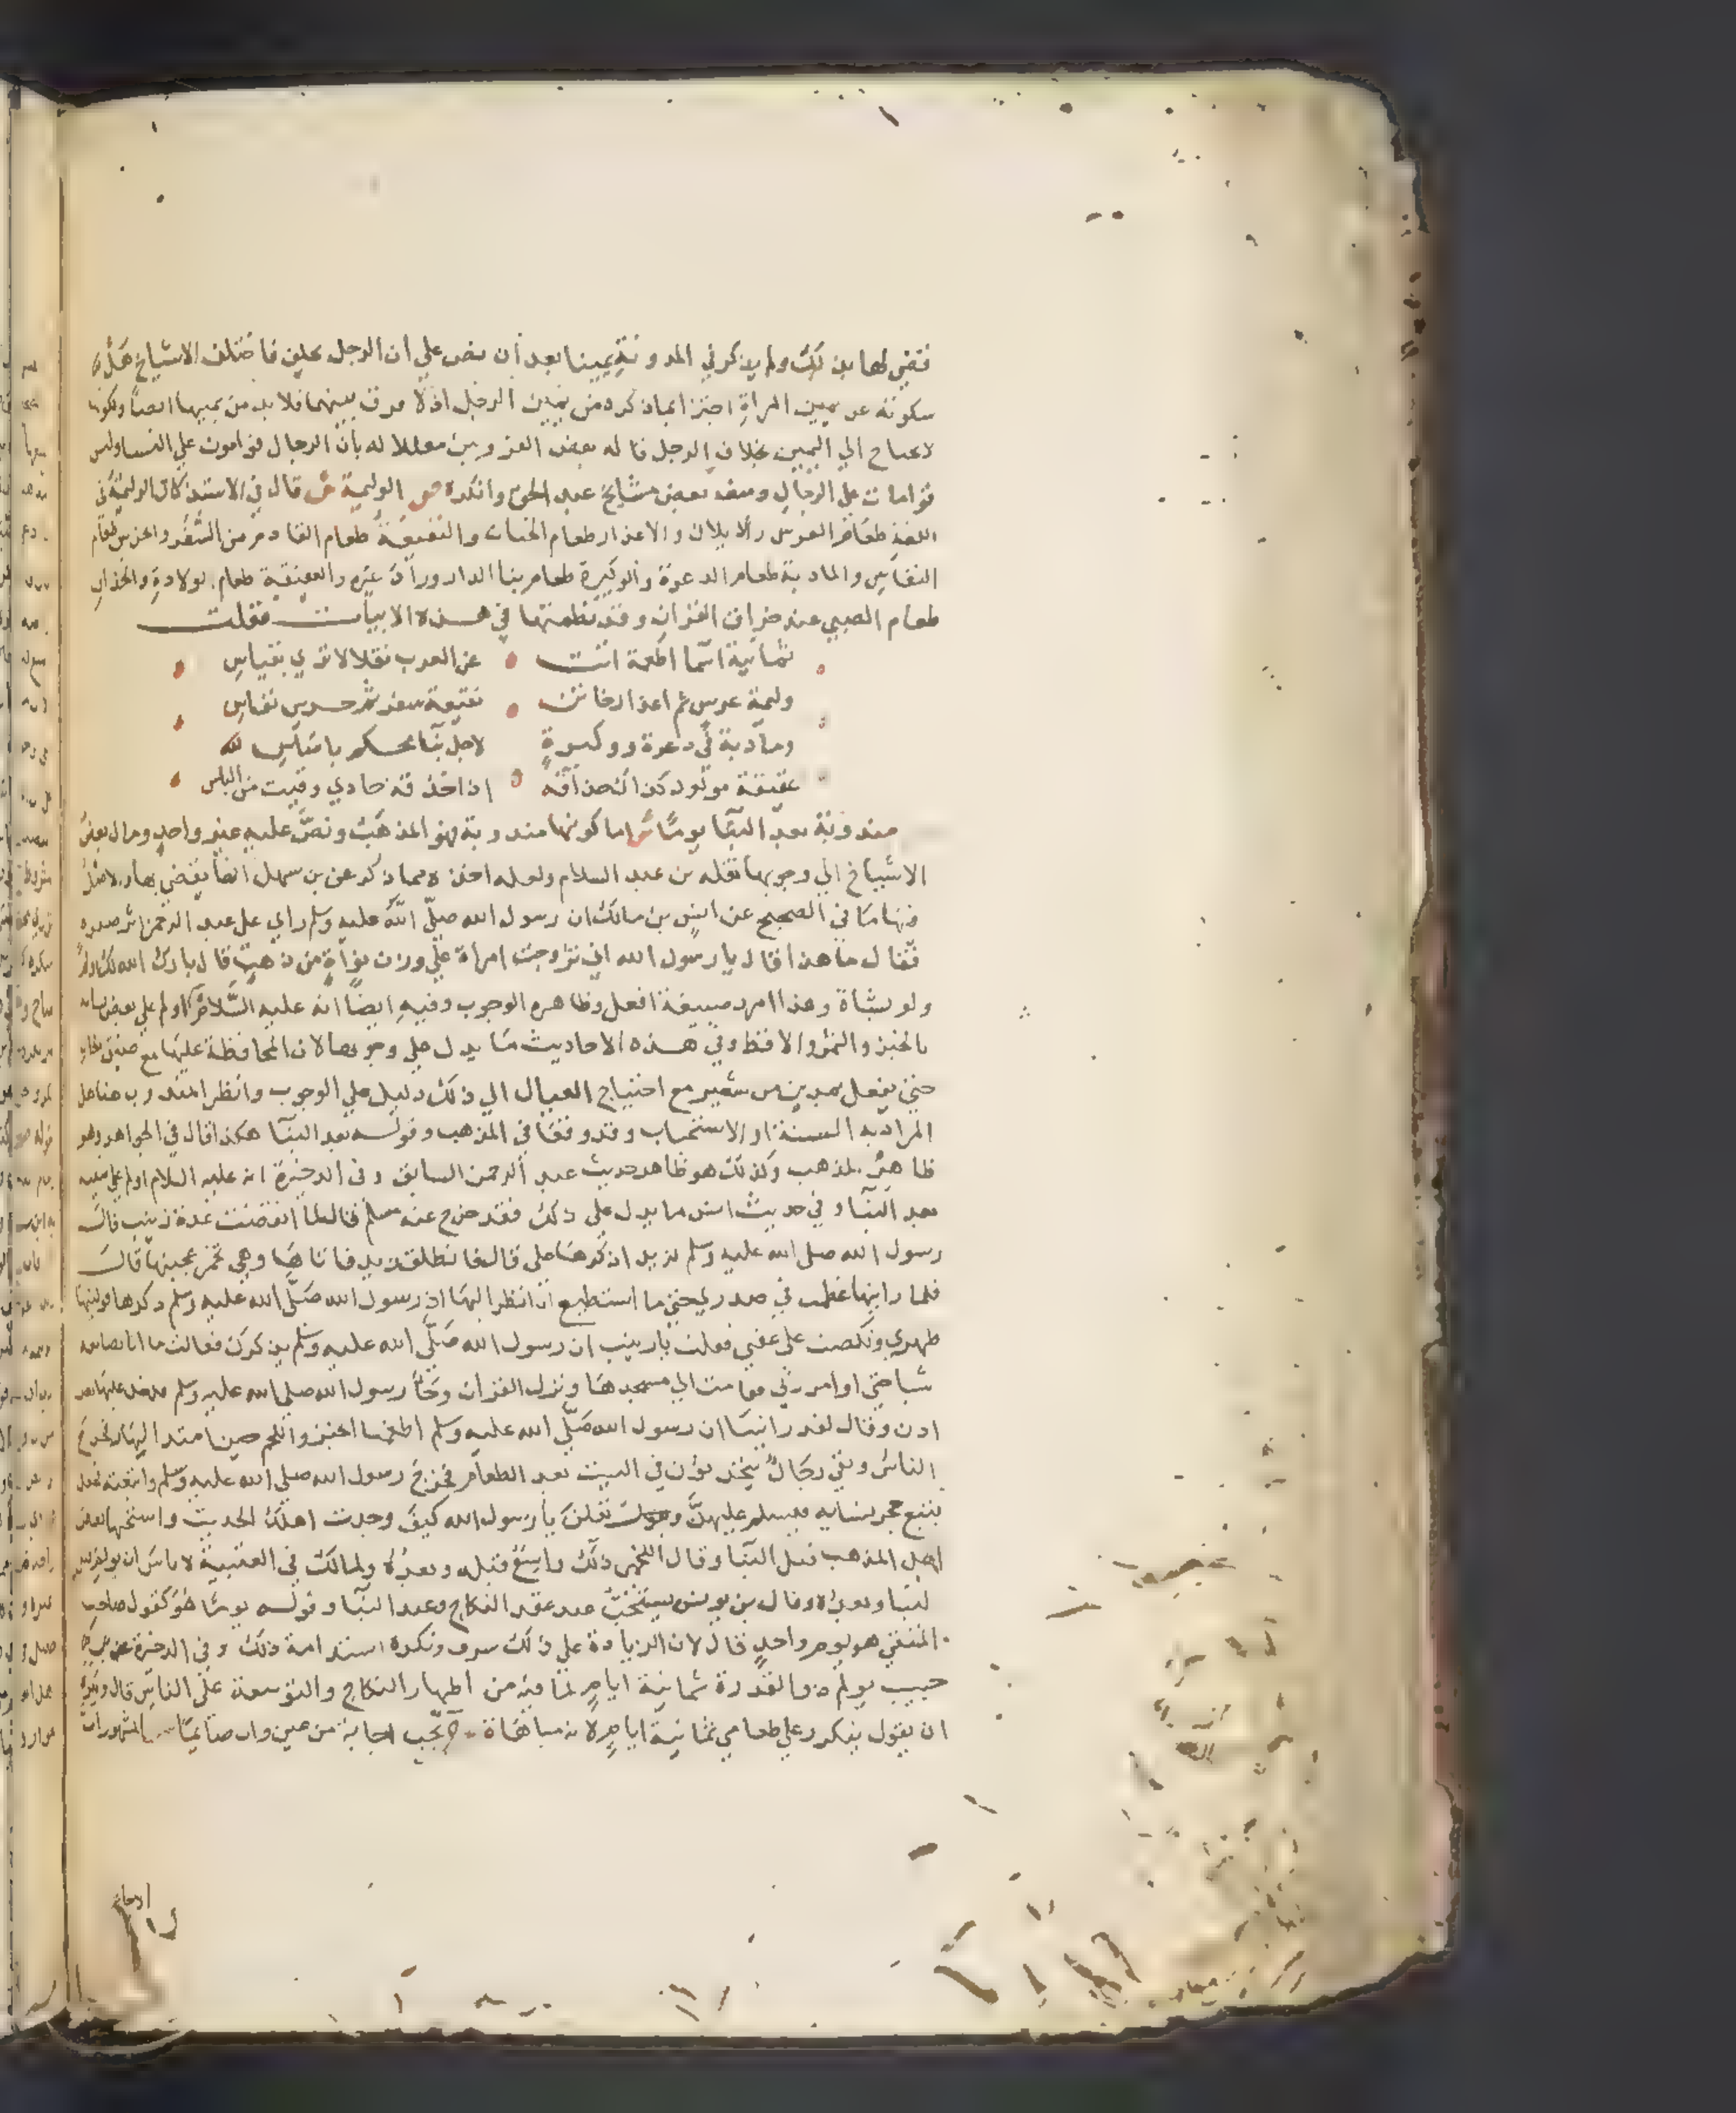 فقضى لها بذلك ولم يذكر في المدونة يمينا بعد أن نص علي ان الرجل يحلف فاختلف الاشياخ هل
سكوته عن يمين المراة اجتزا بما ذكره من يمين الرجل اذ لا فرق بينهما فلا بد من يمينها ايضا او
لا تحتاج الي اليمين بخلاف الرجل قاله بعض القرويين معللا له بان الرجال قوامون علي النسا وليس
قوامات علي الرجال ومنعه بعض مشايخ عبد الحق وانكره ص الوليمة ش قال في الاستذكار الوليمة في
اللغة طعام العرس والاملاك والاعذار طعام الختان والنقيعة طعام القادم من السفر والخرس طعام
النفاس والمادبة طعام الدعوة والوكيرة طعام بنا الدار وزاد غيره والعقيقة طعام الولادة والحذاق
طعام الصبي عند حذاق القران وقد نظمتها في هذه الابيات فقلت
ثمانية اسما اطعمة اتت عن العرب نقلا لا تري بقياس
وليمة عرس ثم اعذار خاتن نقيعة سفر ثم خرس نفاس
ومادبة في دعوة ووكيرة لاجل بنا محكم باساس
عقيقة مولود كذاك حذاقه اذا حذقه حادي وقيت من الباس
مندوبة بعد البنا يوما ش اما كونها مندوبة فهو المذهب ونص عليه غير واحد ومال بعض
الاشياخ الي وجوبها نقله بن عبد السلام ولعله اخذه مما ذكر عن بن سهل انها يقضي بها والاصل
فيها ما في الصحيح عن انس بن مالك ان رسول الله صلي الله عليه وسلم راي علي عبد الرحمن اثر صفره
فقال ما هذا قال يا رسول الله اني تزوجت امراة علي وزن نواة من ذهب قال بارك الله لك اولم
ولو بشاة وهذا امر بصيغة افعل وظاهره الوجوب وفيه ايضا انه عليه السلام اولم علي بعض نسايه
بالخبز والتمر والاقط وفي هذه الاحاديث ما يدل علي وجوبها لان المحافظة عليها مع ضيق
حتي يفعل بمدين من شعير مع احتياج العيال الي ذلك دليل علي الوجوب وانظر المندوب هنا هل
المراد به السنة او الاستحباب وقد وقفا في المذهب وقوله بعد البنا هكذا قال في الجواهر وهو
ظاهر المذهب وكذلك هو ظاهر حديث عبد الرحمن السابق وفي الذخيرة انه عليه السلام اولم علي
بعد البنا وفي حديث انس ما يدل علي ذلك فقد خرج عنه مسلم قال لما انقضت عدة زينب قال
رسول الله صلي الله عليه وسلم لزيد اذكرها علي قال فانطلق زيد فاتاها وهي تخمر عجينها قال
فلما رايتها عظمت في صدري حتي ما استطيع ان انظر اليها ان رسول الله صلي الله عليه وسلم ذكرها فوليتها
ظهري ونكصت علي عقبي فقلت يا زينب ان رسول الله صلي الله عليه وسلم يذكرك فقالت ما انا بصانعة
شيا حتي اوامر ربي فقامت الي مسجدها ونزل القران وجا رسول الله صلي الله عليه وسلم فدخل عليها بغير
اذن وقال لقد رايتنا ان رسول الله صلي الله عليه وسلم اطعمنا الخبز واللحم حين امتد النهار فخرج
الناس وبقي رجال يتحدثون في البيت بعد الطعام فخرج رسول الله صلي الله عليه وسلم واتبعته فجعل
يتتبع حجر نسايه فيسلم عليهن ويقلن يا رسول الله كيف وجدت اهلك الحديث واستحبها بعض
اهل المذهب قبل البنا وقال اللخمي ذلك واسع قبله وبعده ولمالك في العتبية لا باس ان يولم قبل
البنا وبعده وقال بن يونس يستحب عند عقد النكاح وعند البنا وقوله يوما هو كقول صاحب
المتقي هو يوم واحد قال لان الزيادة علي ذلك سرف وتكره استدامة ذلك وفي الذخيرة عن بن
حبيب يولم ذو القدرة ثمانية ايام لما فيه من اظهار النكاح والتوسعة علي الناس قال ويكره
ان يقول يفكر علي طعامي ثمانية ايام لانه مباهاة ص تجب اجابة من عين وان صايما ش المشهور ان
الاجابة